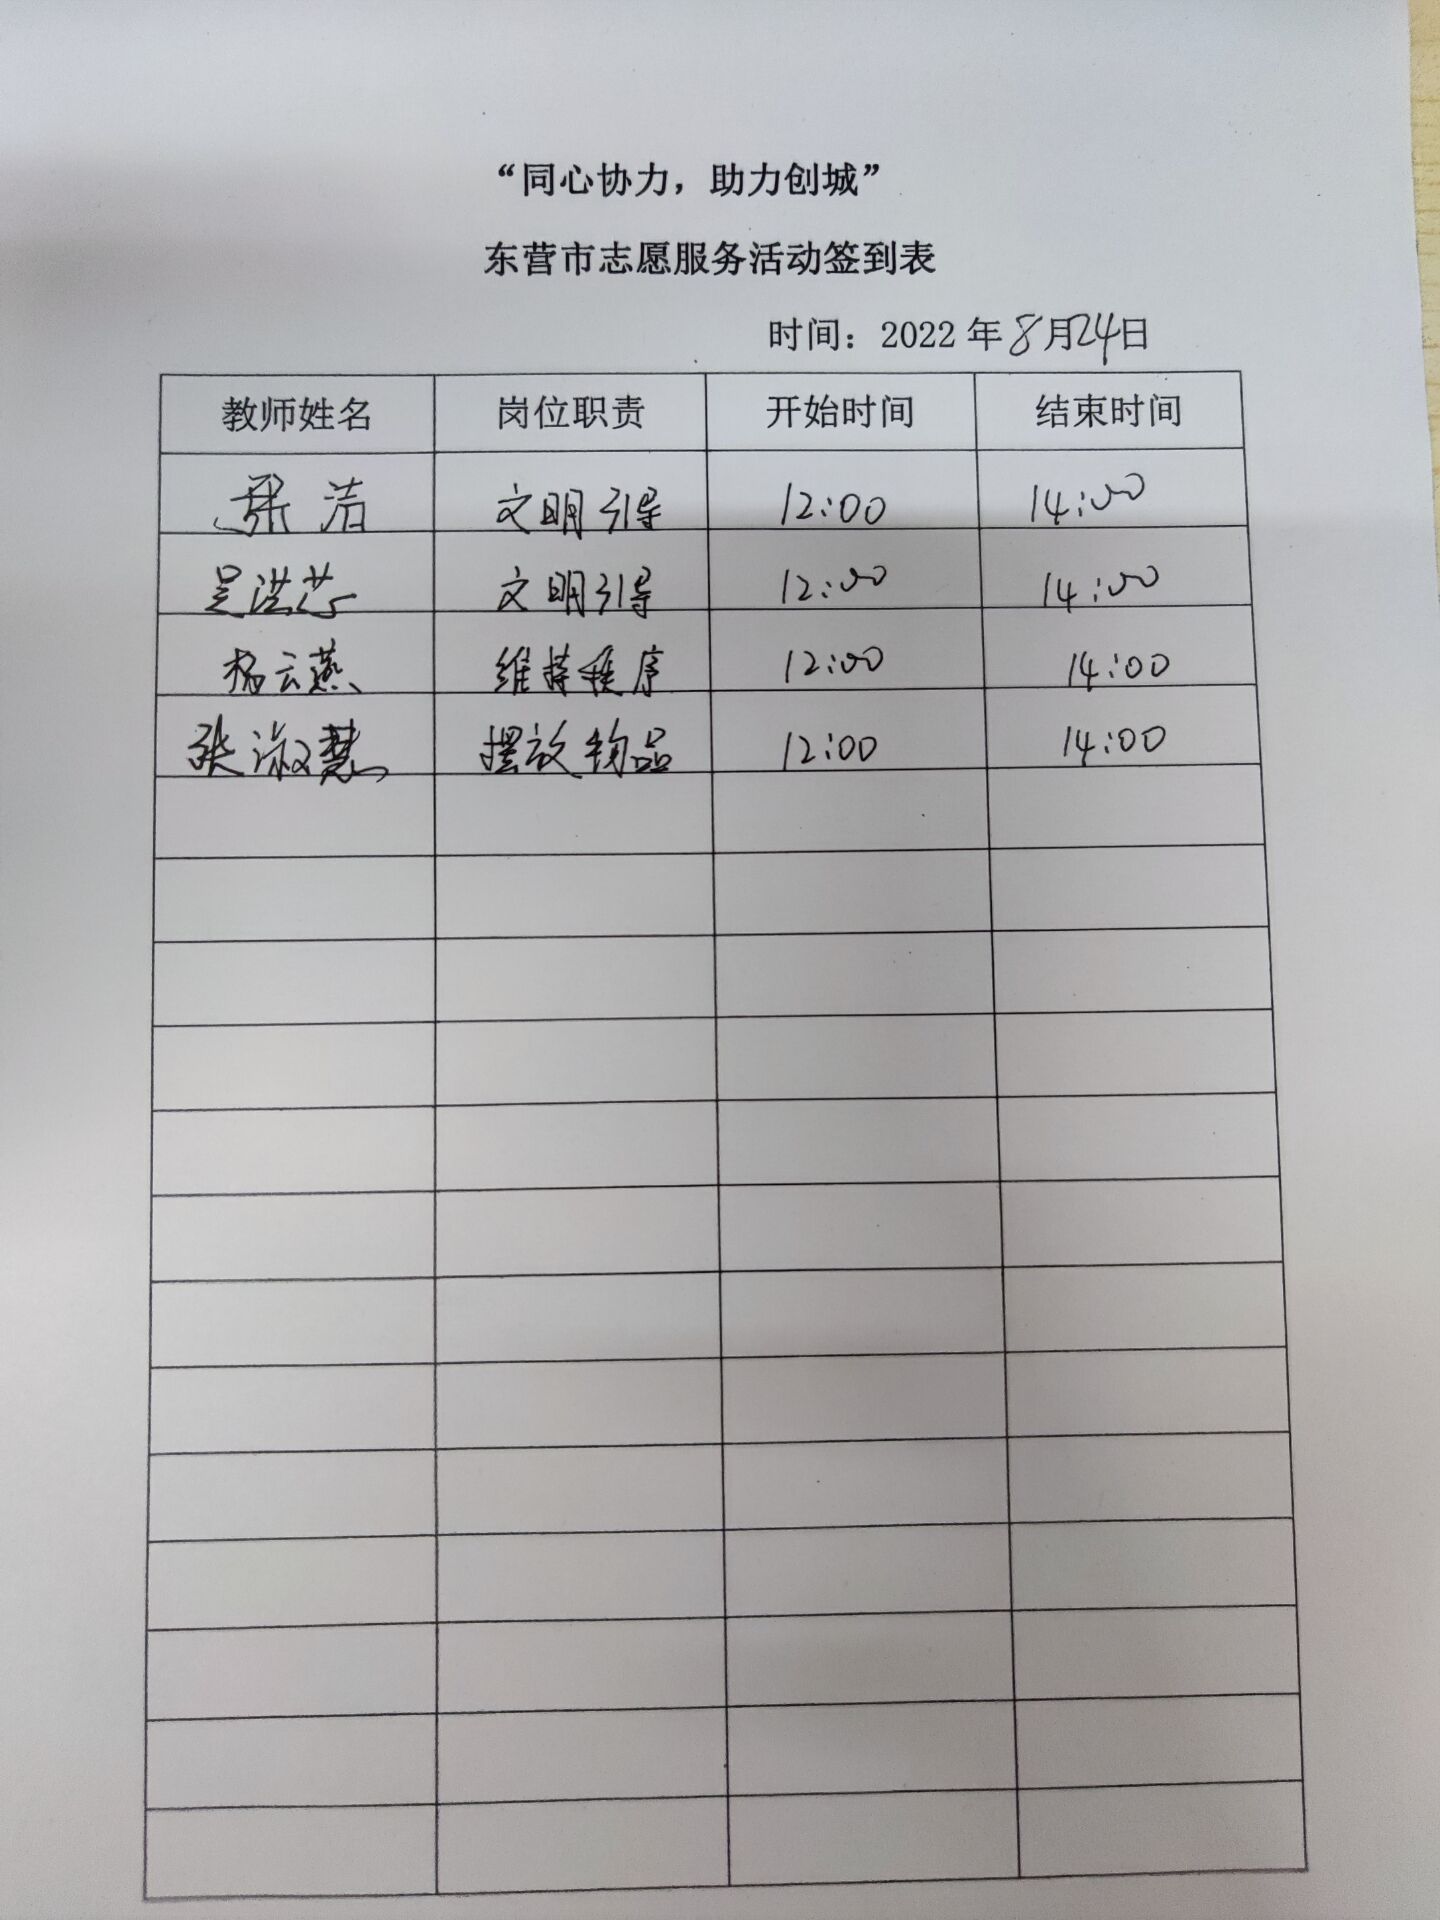 “同心协力，助力创城”
东营市志愿服务活动签到表
时间：2022年8月24日
教师姓名 岗位职责 开始时间 结束时间
张洁 文明引导 12:00 14:00
吴洪芯 文明引导 12:00 14:00
杨云燕 维持秩序 12:00 14:00
张淑慧 摆放物品 12:00 14:00